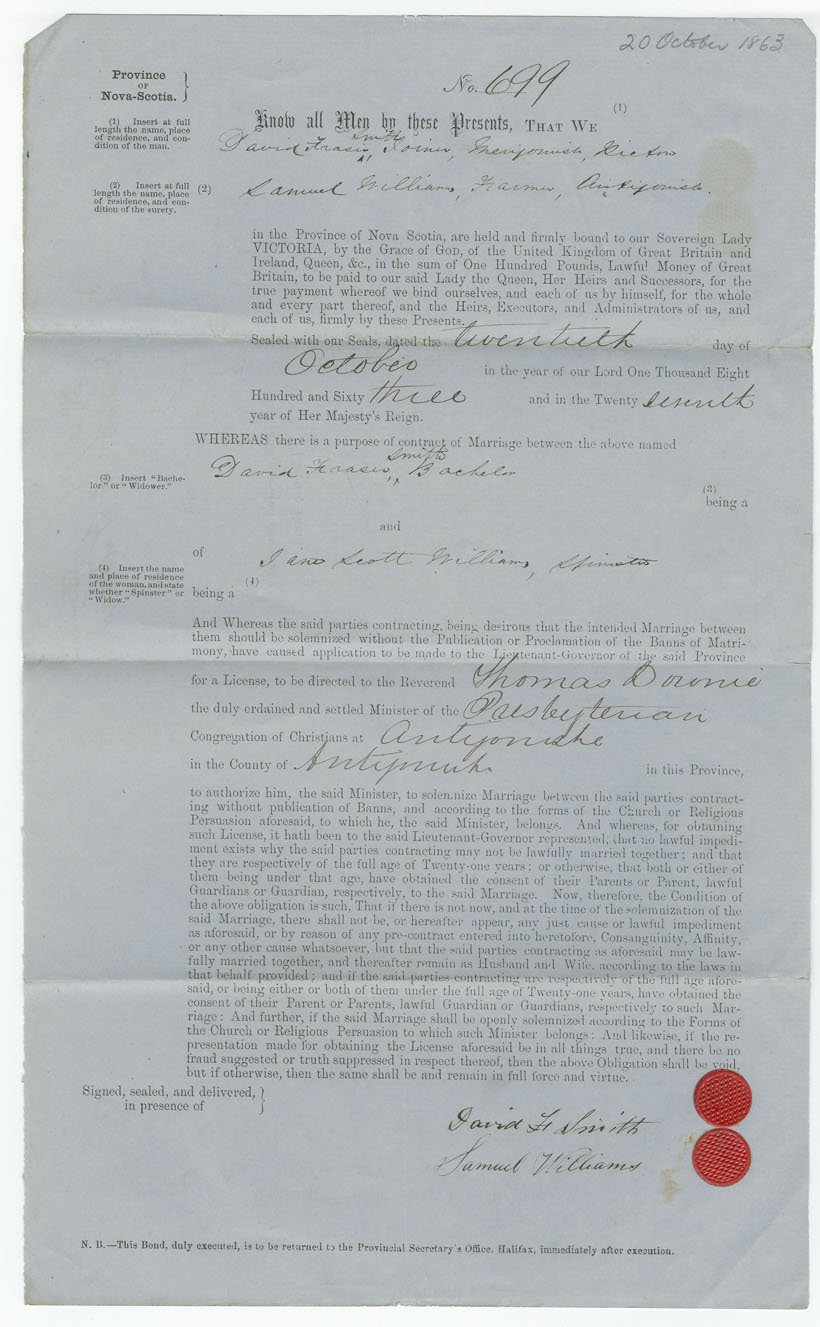 20 October 1863
Province
OF
Nova-Scotia.
No. 699
(1) Insert at full
length the name, place
of residence, and con-
dition of the man.
(1)
Know all Men by these Presents, THAT WE
David Fraser Smith Joiner, Merigomish, Pictou
(2) Insert at full
length the name, place
of residence, and con-
dition of the surety.
(2) Samuel Williams, Farmer, Antigonish.
in the Province of Nova Scotia, are held and firmly bound to our Sovereign Lady
VICTORIA, by the Grace of GOD, of the United Kingdom of Great Britain and
Ireland, Queen, &c., in the sum of One Hundred Pounds, Lawful Money of Great
Britain, to be paid to our said Lady the Queen, Her Heirs and Successors, for the
true payment whereof we bind ourselves, and each of us by himself, for the whole
and every part thereof, and the Heirs, Executors, and Administrators of us, and
each of us, firmly by these Presents.
Sealed with our Seals, dated the twentieth day of
October in the year of our Lord One Thousand Eight
Hundred and Sixty three and in the Twenty seventh
year of Her Majesty's Reign.
WHEREAS there is a purpose of contract of Marriage between the above named
David Fraser Smith, Bachelor
(3) Insert "Bache-
lor" or "Widower."
(3)
being a
and
of Jane Scott Williams, Spinster
(4) Insert the name
and place of residence
of the woman, and state
whether "Spinster" or
"Widow."
(4)
being a
And Whereas the said parties contracting, being desirous that the intended Marriage between
them should be solemnized without the Publication or Proclamation of the Banns of Matri-
mony, have caused application to be made to the Lieutenant-Governor of the said Province
for a License, to be directed to the Reverend Thomas Downie
the duly ordained and settled Minister of the Presbyterian
Congregation of Christians at Antigonishe
in the County of Antigonish in this Province,
to authorize him, the said Minister, to solemnize Marriage between the said parties contract-
ing without publication of Banns, and according to the forms of the Church or Religious
Persuasion aforesaid, to which he, the said Minister, belongs. And whereas, for obtaining
such License, it hath been to the said Lieutenant-Governor represented, that no lawful impedi-
ment exists why the said parties contracting may not be lawfully married together; and that
they are respectively of the full age of Twenty-one years; or otherwise, that both or either of
them being under that age, have obtained the consent of their Parents or Parent, lawful
Guardians or Guardian, respectively, to the said Marriage. Now, therefore, the Condition of
the above obligation is such, That if there is not now, and at the time of the solemnization of the
said Marriage, there shall not be, or hereafter appear, any just cause or lawful impediment
as aforesaid, or by reason of any pre-contract entered into heretofore, Consanguinity, Affinity,
or any other cause whatsoever, but that the said parties contracting as aforesaid may be law-
fully married together, and thereafter remain as Husband and Wife, according to the laws in
that behalf provided; and if the said parties contracting are respectively of the full age afore-
said, or being either or both of them under the full age of Twenty-one years, have obtained the
consent of their Parent or Parents, lawful Guardian or Guardians, respectively to such Mar-
riage: And further, if the said Marriage shall be openly solemnized according to the Forms of
the Church or Religious Persuasion to which such Minister belongs: And likewise, if the re-
presentation made for obtaining the License aforesaid be in all things true, and there be no
fraud suggested or truth suppressed in respect thereof, then the above Obligation shall be void,
but if otherwise, then the same shall be and remain in full force and virtue.
Signed, sealed, and delivered,
in presence of
David F Smith
Samuel Williams
N. B.—This Bond, duly executed, is to be returned to the Provincial Secretary's Office, Halifax, immediately after execution.